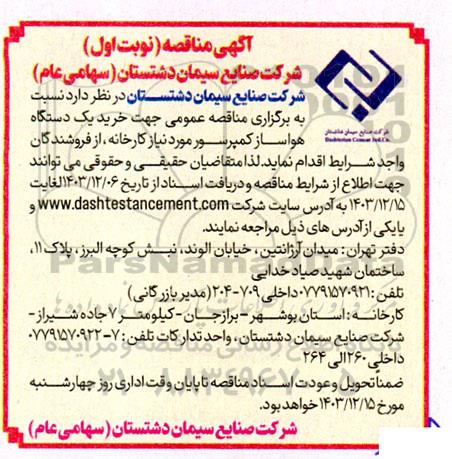 آگهی مناقصه (نوبت اول)
شرکت صنایع سیمان دشتستان (سهامی عام)
شرکت صنایع سیمان دشتستان
Dashtestan Cement Ind.Co.
شرکت صنایع سیمان دشتستان در نظر دارد نسبت
به برگزاری مناقصه عمومی جهت خرید یک دستگاه
هواساز کمپرسور مورد نیاز کارخانه، از فروشندگان
واجد شرایط اقدام نماید. لذا متقاضیان حقیقی و حقوقی می توانند
جهت اطلاع از شرایط مناقصه و دریافت اسناد از تاریخ ۱۴۰۳/۱۲/۰۶ لغایت
۱۴۰۳/۱۲/۱۵ به آدرس سایت شرکت www.dashtestancement.com و
یا یکی از آدرس های ذیل مراجعه نمایند.
دفتر تهران: میدان آرژانتین، خیابان الوند، نبش کوچه البرز، پلاک ۱۱،
ساختمان شهید صیاد خدایی
تلفن: ۰۷۷۹۱۵۷۰۹۲۱ داخلی ۷۰۹-۲۰۴ (مدیر بازرگانی)
کارخانه: استان بوشهر - برازجان - کیلومتر ۷ جاده شیراز -
شرکت صنایع سیمان دشتستان، واحد تدارکات تلفن: ۷-۰۷۷۹۱۵۷۰۹۲۲
داخلی ۲۶۰ الی ۲۶۴
ضمناً تحویل و عودت اسناد مناقصه تا پایان وقت اداری روز چهارشنبه
مورخ ۱۴۰۳/۱۲/۱۵ خواهد بود.
شرکت صنایع سیمان دشتستان (سهامی عام)
ParsNamadData
۰۲۱-۸۸۳۴۹۶۷۰